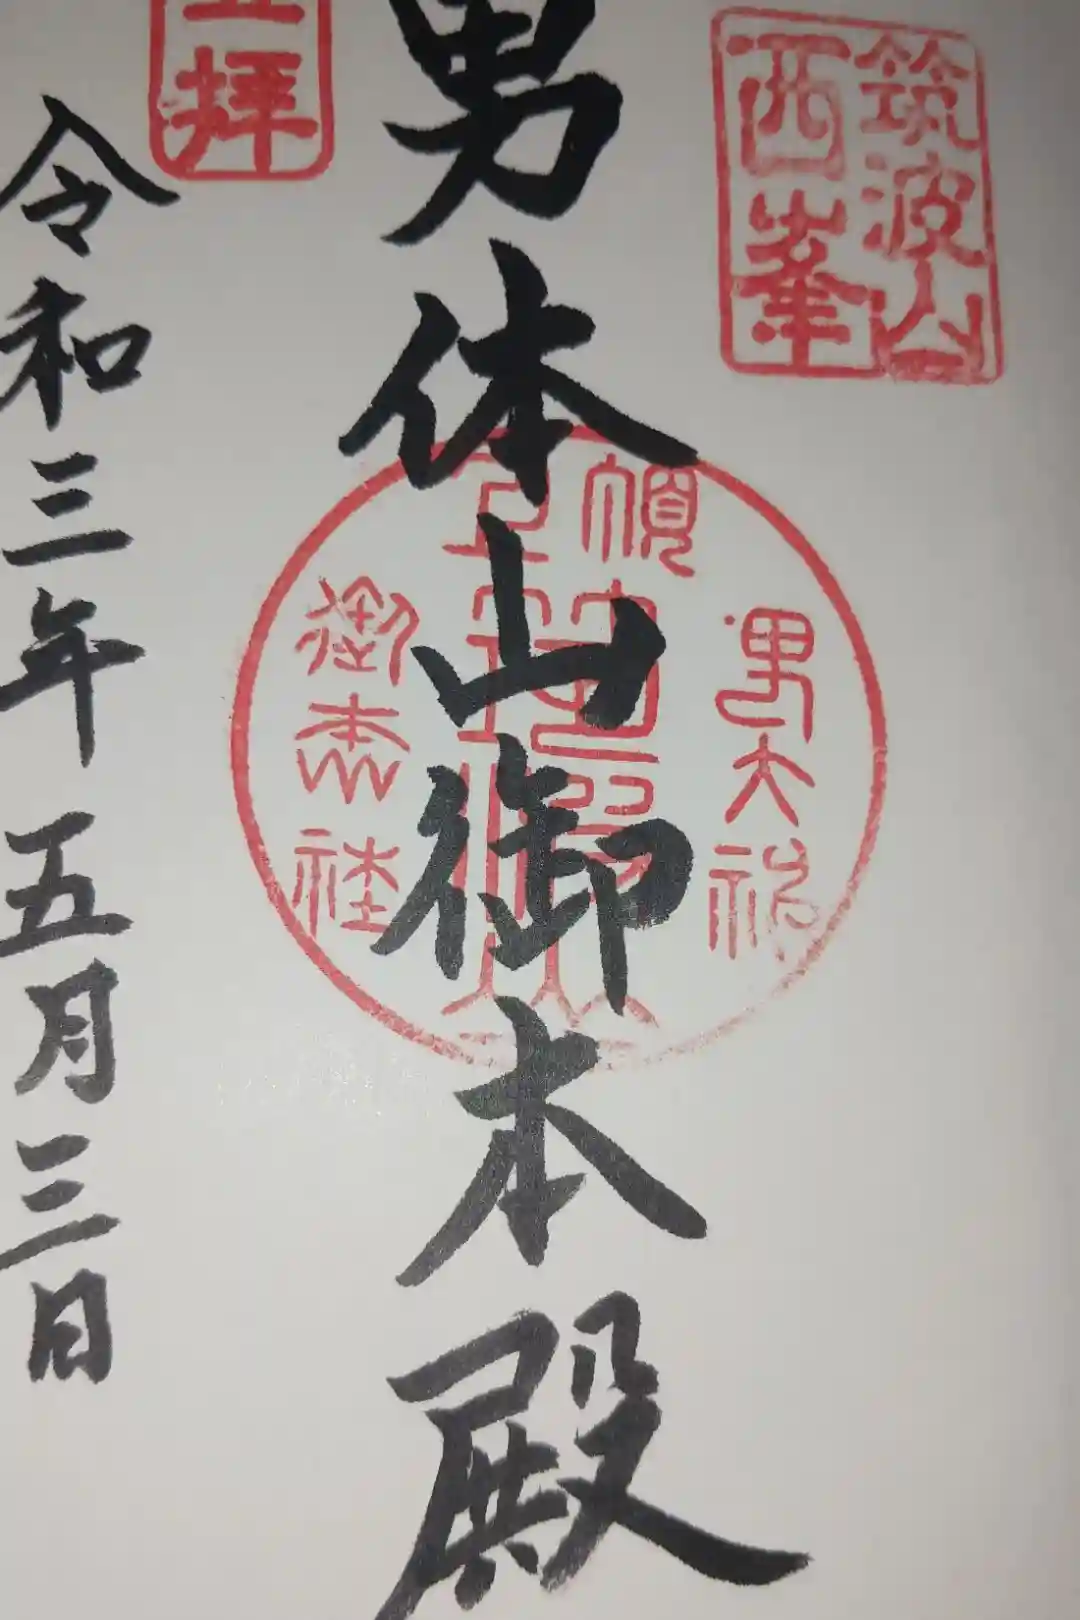 筑波山
西峯
男体山御本殿
男大神
御本社
拝
令和三年五月三日